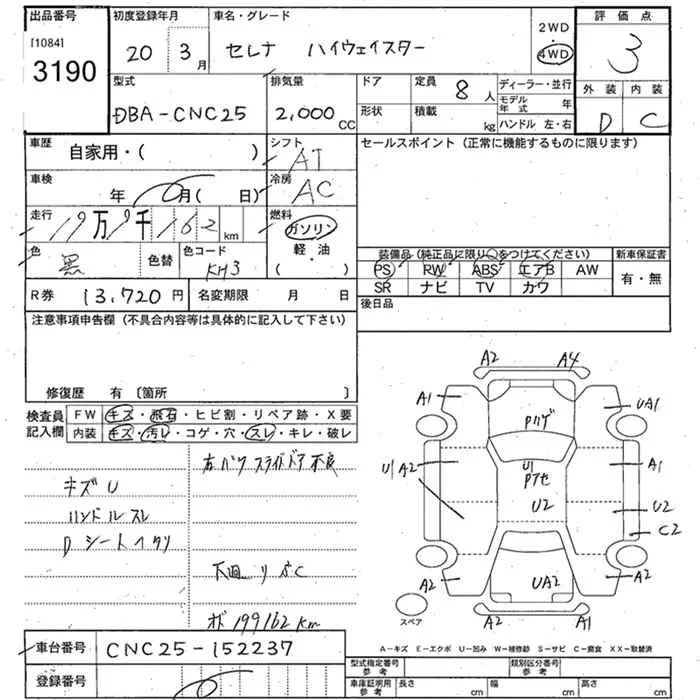 出品番号 初度登録年月 車名・グレード 2WD・4WD 評価点
[1084] 3190 20年 3月 セレナ ハイウェイスター 3
型式 排気量 ドア 定員 8人 ディーラー・並行 外装 内装
DBA-CNC25 2,000cc 形状 積載 kg モデル年式 年 D C
ハンドル 左・右
車歴 自家用・( ) シフト AT セールスポイント(正常に機能するものに限ります)
車検 年 月( 日) 冷房 AC
走行 19万9千162km 燃料 ガソリン
軽・油
( )
色 黒 色替 色コード KH3
装備品(純正品に限り○をつけてください) 新車保証書
PS RW ABS エアB AW 有・無
SR ナビ TV カワ
R券 13,720円 名変期限 月 日 後日品
注意事項申告欄(不具合内容等は具体的に記入して下さい)
修復歴 有〔箇所 〕
検査員記入欄 FW キズ・飛石・ヒビ割・リペア跡・X要
内装 キズ・汚レ・コゲ・穴・スレ・キレ・破レ
右パワスライドドア不良
キズU
ハンドルスレ
Dシートヘタリ
下廻リサビC
オド199162km
A2 A4
A1 UA1
Pハゲ
U1 A2 U1 A1
Pアセ
U2 U2
C2
A2 UA2 A2
A2 A1
スペア
A-キズ E-エクボ U-凹み W-補修跡 S-サビ C-腐食 XX-取替済
車台番号 CNC25-152237
登録番号
型式指定番号 参考 類別区分番号 参考
車庫証明用 参考 長さ cm 幅 cm 高さ cm